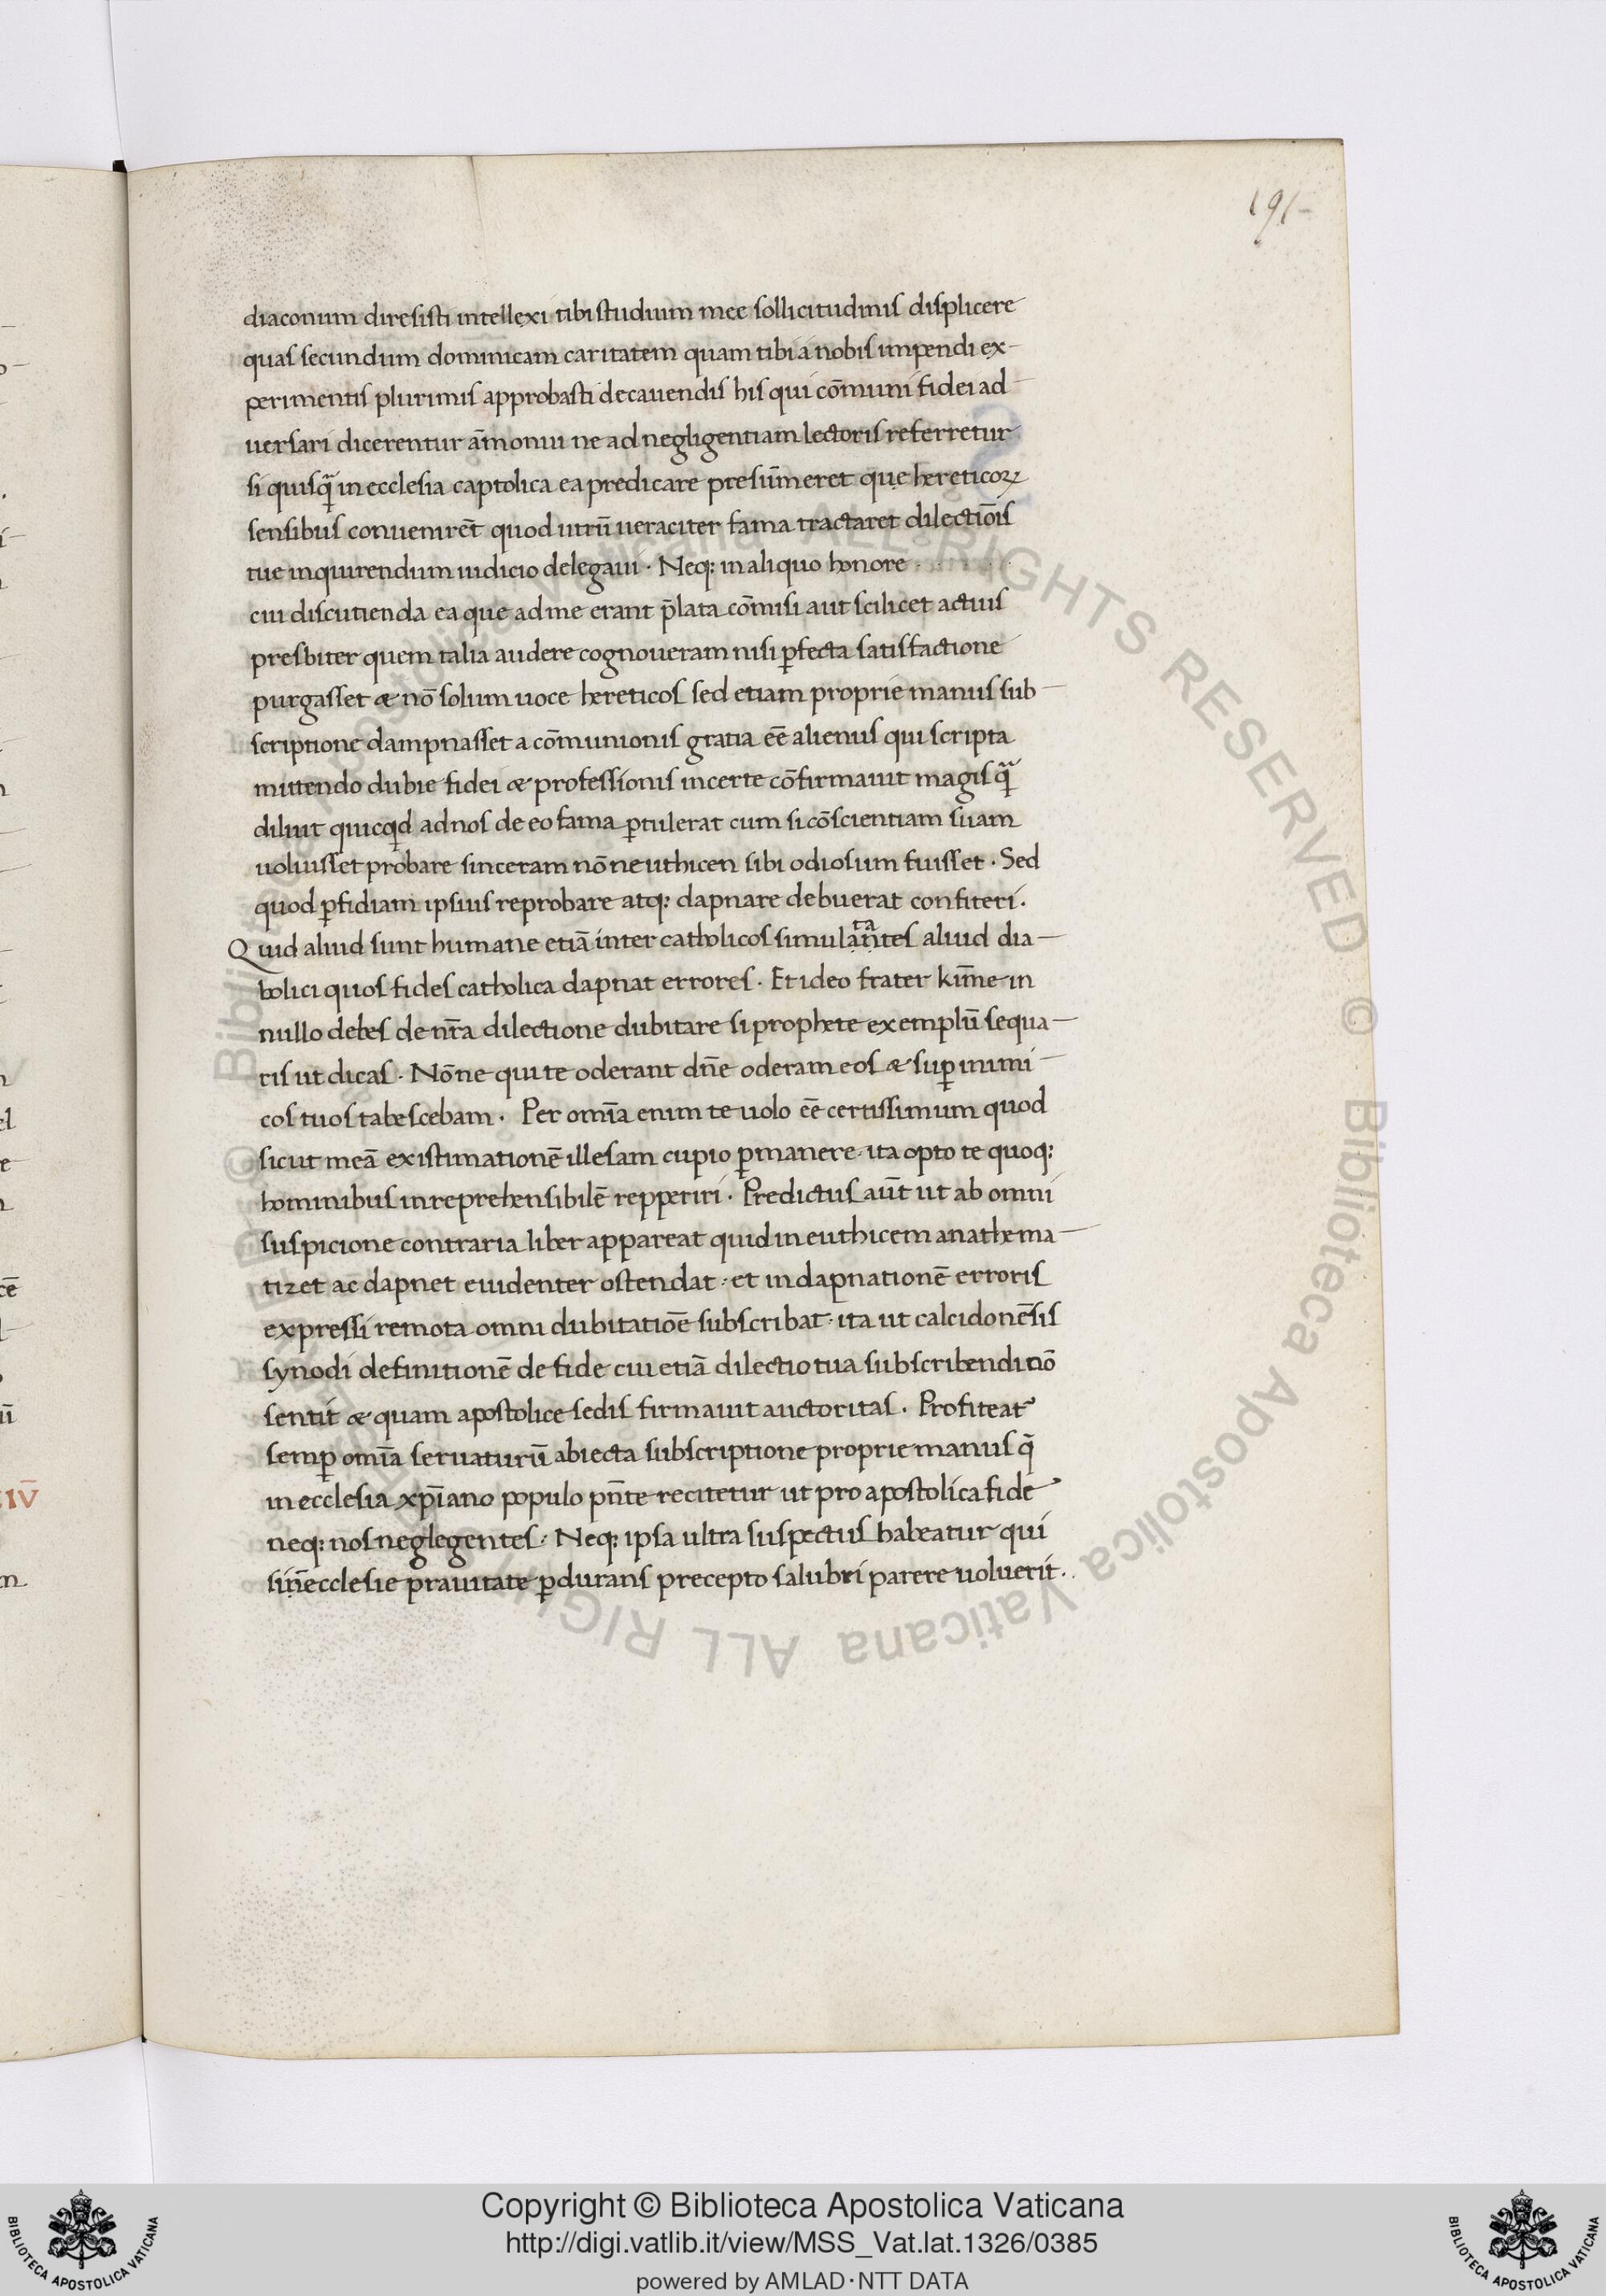 191
diaconum diresisti intellexi tibi studium mee sollicitudinis displicere
quas secundum dominicam caritatem quam tibi a nobis impendi ex
perimentis plurimis approbasti de cauendis his qui cōmuni fidei ad
uersari dicerentur āmonui ne ad negligentiam lectoris referretur
si quisq̄ in ecclesia captolica ea predicare presūmeret que hereticoꝝ
sensibus conuenirēt quod utrū ueraciter fama tractaret dilectiōis
tue inquirendum iudicio delegaui · Neq: in aliquo honore
cui discutienda ea que ad me erant p̄lata cōmisi aut scilicet actius
presbiter quem talia audere cognoueram nisi ꝑfecta satisfactione
purgasset & nō solum uoce hereticos sed etiam proprie manus sub
scriptione dampnasset a cōmunionis gratia eē alienus qui scripta
mittendo dubie fidei & professionis incerte cōfirmauit magis q̄
diluit quicqd ad nos de eo fama ꝑtulerat cum si cōscientiam suam
uoluisset probare sinceram nō ne uthicen sibi odiosum fuisset · Sed
quod ꝑfidiam ipsius reprobare atq: dapnare debuerat confiteri ·
Quid aliud sunt humane etiā inter catholicos simulantes ta aliud dia
bolici quos fides catholica dapnat errores · Et ideo frater kīme in
nullo debes de nr̄a dilectione dubitare si prophete exemplū sequa
ris ut dicas · Nōne qui te oderant dn̄e oderam eos & suꝑ inimi
cos tuos tabescebam · Per omīa enim te uolo eē certissimum quod
sicut meā existimationē illesam cupio ꝑmanere · ita opto te quoq:
hominibus inreprehensibilē repperiri · Predictus aūt ut ab omni
suspicione contraria liber appareat quid in euthicem anathema
tizet ac dapnet euidenter ostendat · et in dapnationē erroris
expressi remota omni dubitatiōe subscribat · ita ut calcidonēsis
synodi definitionē de fide cui etiā dilectio tua subscribendi nō
sentit & quam apostolice sedis firmauit auctoritas · Profiteat᷑
semꝑ omīa seruaturū abiecta subscriptione proprie manus q̄
in ecclesia xp̄iano populo pn̄te recitetur ut pro apostolica fide
neq: nos neglegentes · Neq: ipsa ultra suspectus habeatur qui
sin̄ ecclesie prauitate ꝑdurans precepto salubri parere uoluerit ·
© Biblioteca Apostolica Vaticana ALL RIGHTS RESERVED © Biblioteca Apostolica Vaticana ALL RIGHTS RESERVED
Copyright © Biblioteca Apostolica Vaticana
http://digi.vatlib.it/view/MSS_Vat.lat.1326/0385
powered by AMLAD·NTT DATA
BIBLIOTECA APOSTOLICA VATICANA
BIBLIOTECA APOSTOLICA VATICANA